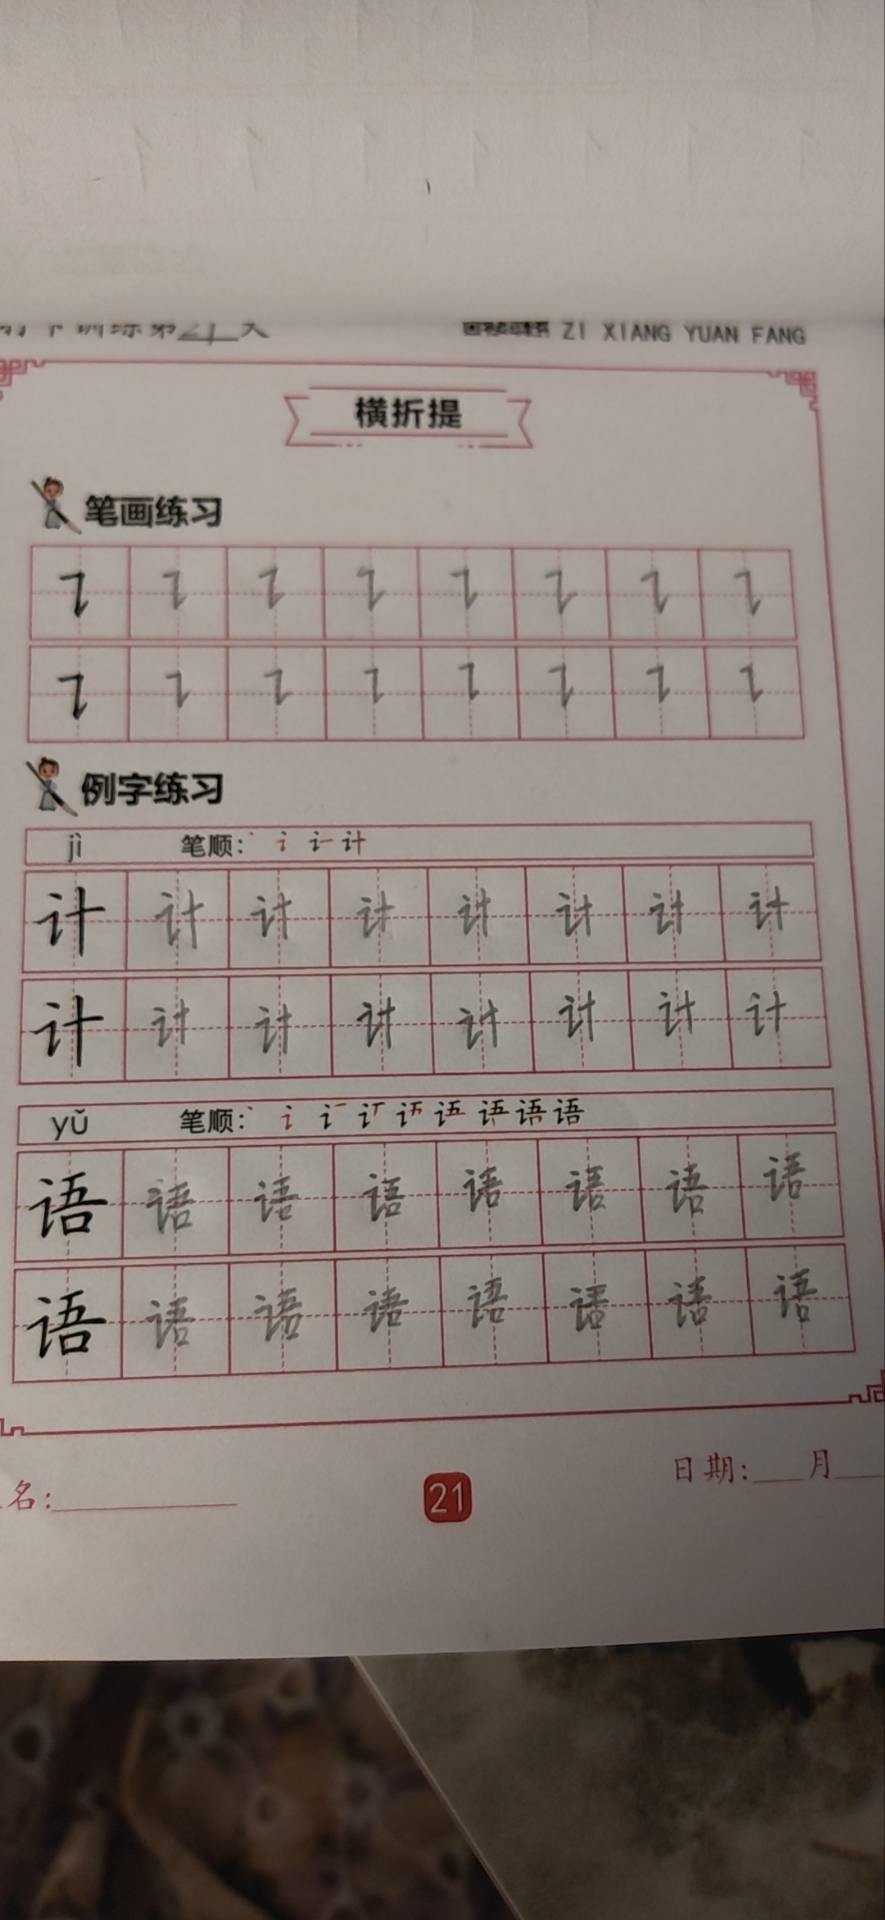 打卡训练第21天
ZI XIANG YUAN FANG
横折提
笔画练习
例字练习
jì 笔顺: 丶 讠 计
计 计 计 计 计 计 计 计
计 计 计 计 计 计 计 计
yǔ 笔顺:
语 语 语 语 语 语 语 语
语 语 语 语 语 语 语 语
名:
21
日期: 月